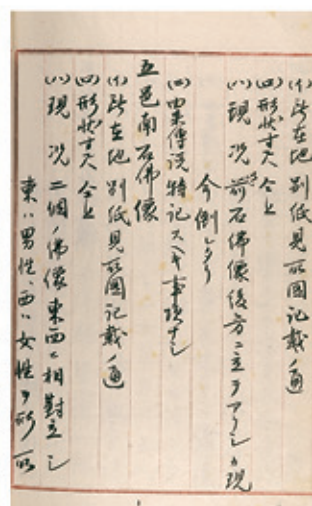 (イ) 所在地 別紙見取圖記載ノ通
(ロ) 形状寸尺 仝上
(ハ) 現況 前石佛像後方ニ立チアリシカ現
今倒レタリ
(ニ) 由来傳説特記スヘキ事項ナシ
五 邑南石佛像
(イ) 所在地 別紙見取圖記載ノ通
(ロ) 形状寸尺 仝上
(ハ) 現況 二個ノ佛像東西ニ相對立シ
東ハ男性、西ハ女性ヲ形取